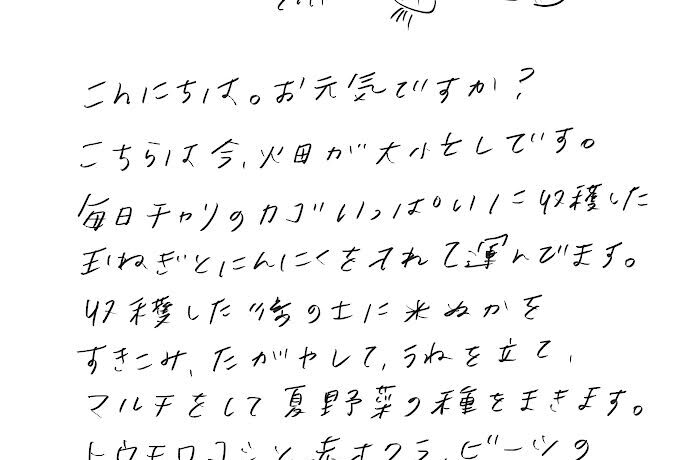 こんにちは。お元気ですか?
こちらは今、畑が大忙しです。
毎日チャリのカゴいっぱいに収穫した
玉ねぎとにんにくをそれて運んでます。
収穫した後の土に米ぬかを
すきこみ、たがやして、うねを立て、
マルチをして夏野菜の種をまきます。
トウモロコシと赤オクラ、ビーツの